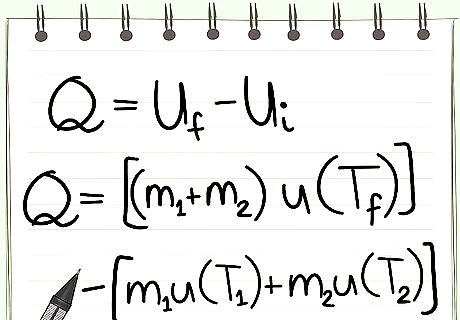 Q = U_f - U_i
Q = [(m₁+m₂) u(T_f)]
- [m₁u(T₁)+m₂u(T₂)]